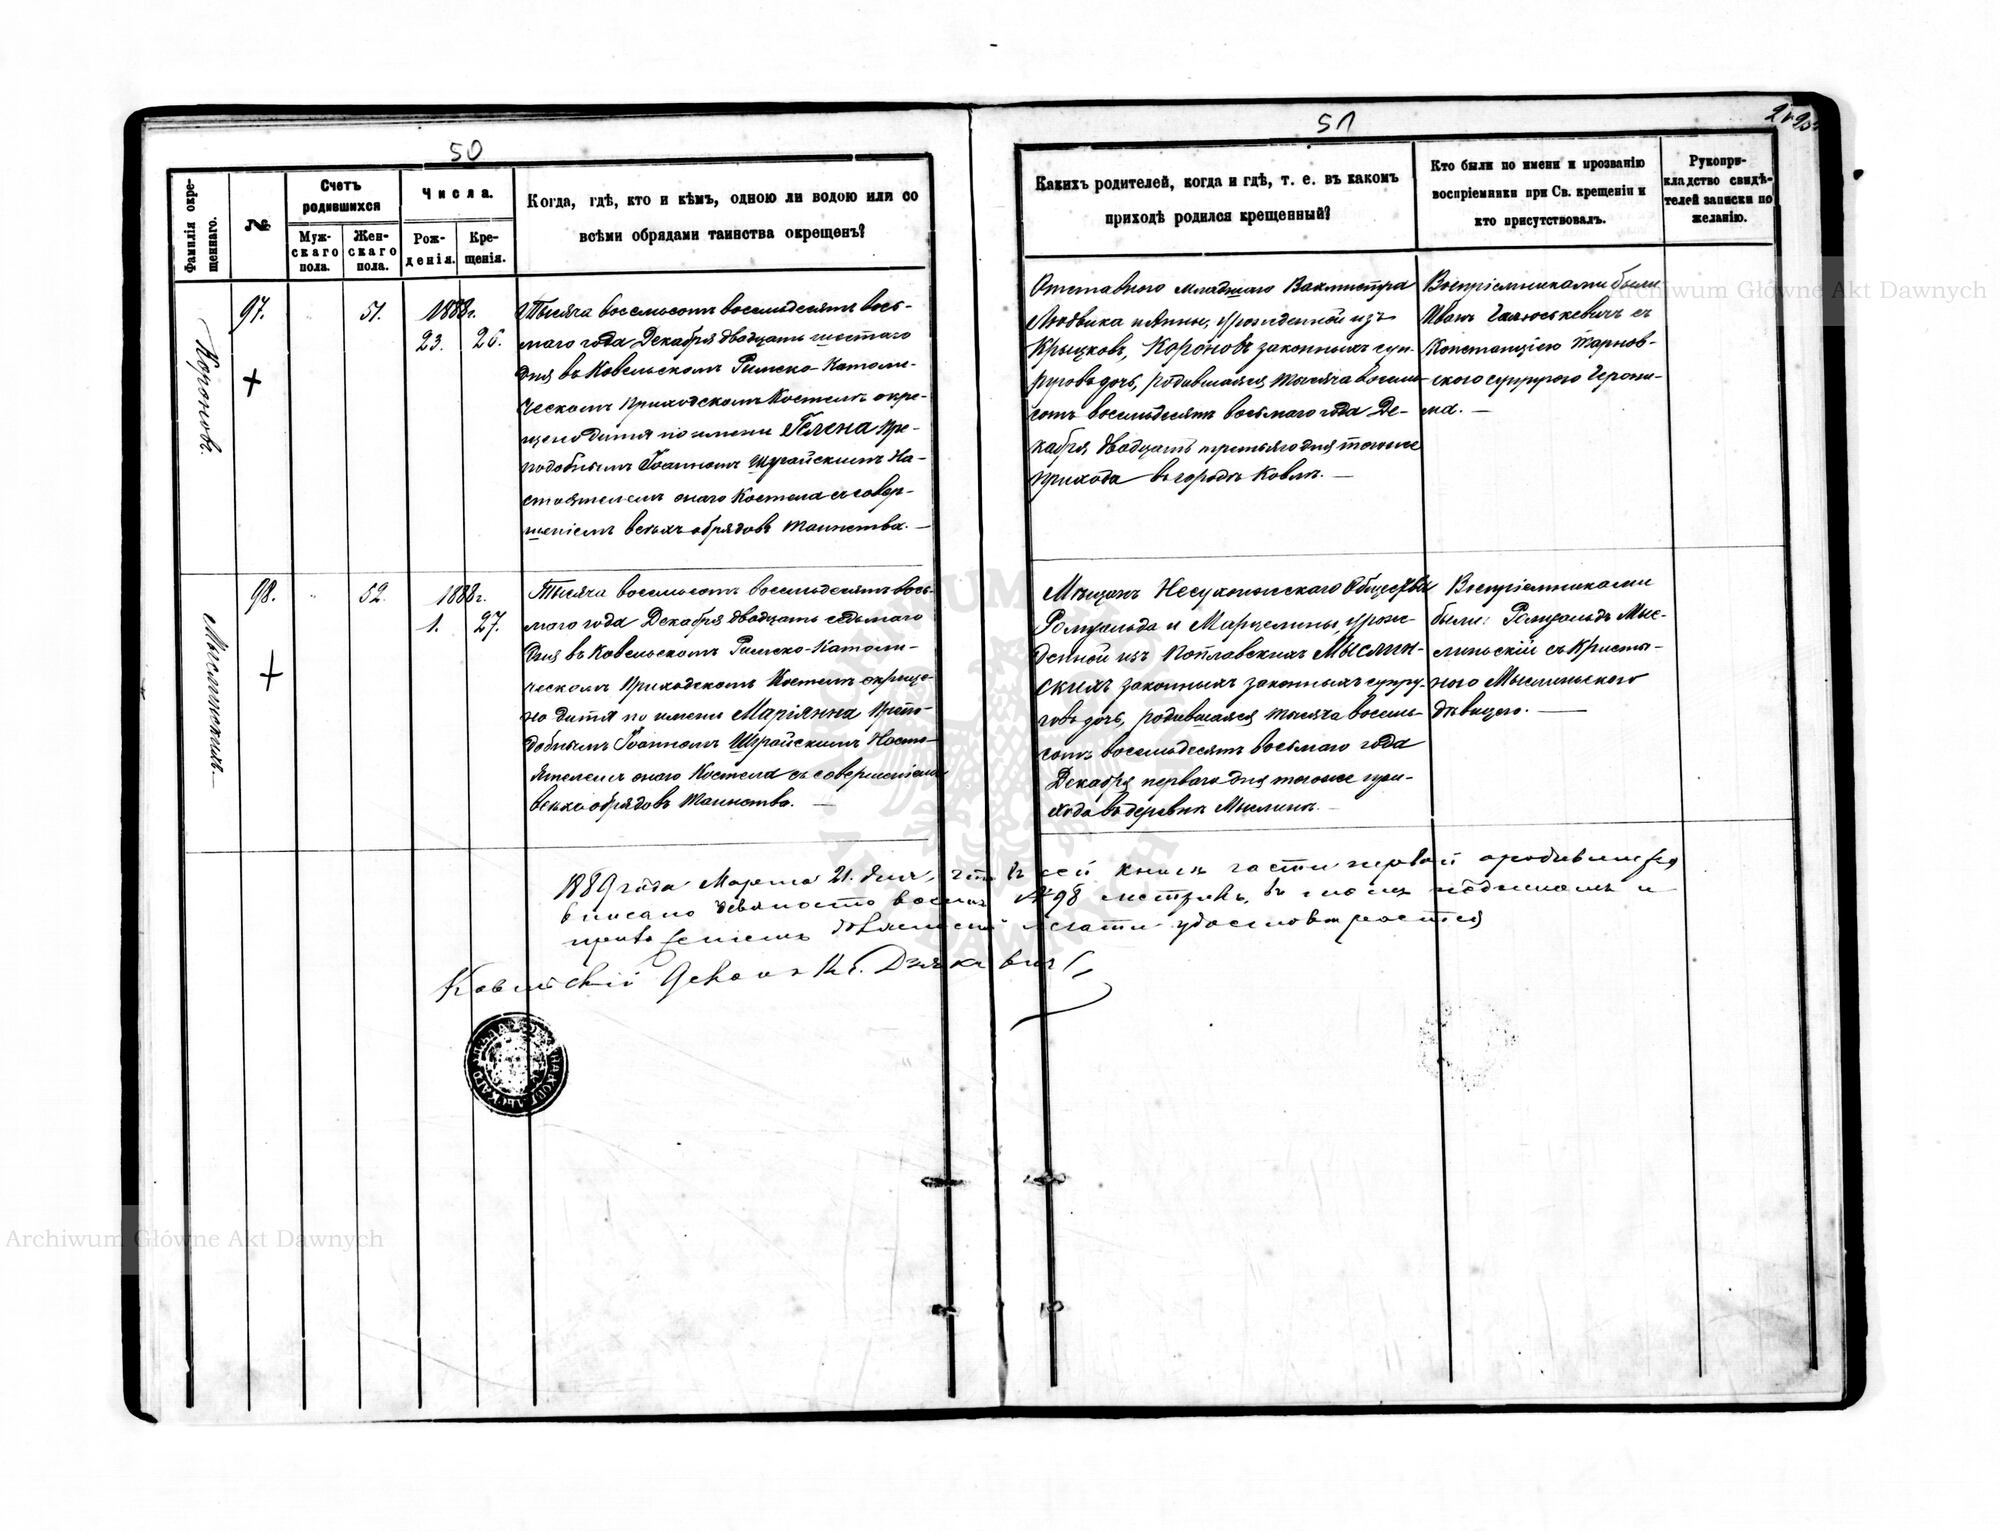 50
Фамилія окре-
щеннаго.
№
Счетъ
родившихся
Муж-
скаго
пола.
Жен-
скаго
пола.
Числа.
Рож-
денія.
Кре-
щенія.
Когда, гдѣ, кто и кѣмъ, одною ли водою или со
всѣми обрядами таинства окрещенъ?
Короновъ.
97.
51.
1888г.
23. 26.
Тысяча восемьсотъ восемьдесятъ вось-
маго года Декабря двадцать шестаго
дня въ Ковельскомъ Римско-Католи-
ческомъ Приходскомъ Костелѣ окре-
щено дитя по имени Гелена Пре-
подобнымъ Іоанномъ На-
стоятелемъ онаго Костела съ совер-
шеніемъ всѣхъ обрядовъ таинства. —
Мыслинскихъ.
98.
52.
1888г.
1. 27.
Тысяча восемьсотъ восемьдесятъ вось-
маго года Декабря двадцать седьмаго
дня въ Ковельскомъ Римско-Католи-
ческомъ Приходскомъ Костелѣ окреще-
но дитя по имени Маріянна Препо-
добнымъ Іоанномъ Насто-
ятелемъ онаго Костела съ совершеніемъ
всѣхъ обрядовъ таинства. —
51
Какихъ родителей, когда и гдѣ, т. е. въ какомъ
приходѣ родился крещенный?
Кто были по имени и прозванію
воспріемники при Св. крещеніи и
кто присутствовалъ.
Рукопри-
кладство свидѣ-
телей записки по
желанію.
Отставнаго младшаго Вахмистра
Людвика и Анны, урожденной изъ
Крыцковъ, Короновъ законныхъ суп-
руговъ дочь, родившаяся тысяча восемь-
сотъ восемьдесятъ восьмаго года Де-
кабря двадцать третьяго дня тогоже
прихода въ городѣ Ковлѣ. —
Воспріемниками были
Иванъ съ
Констанціею Тарнов-
скаго супругою Герони-
ма. —
Мѣщанъ Несухоижскаго Общества
Ромуальда и Марцелины, урож-
денной изъ Поплавскихъ Мыслин-
скихъ законныхъ законныхъ супру-
говъ дочь, родившаяся тысяча восемь-
сотъ восемьдесятъ восьмаго года
Декабря перваго дня тогоже при-
хода въ деревнѣ Мыслинѣ. —
Воспріемниками
были: Ромуальдъ Мыс-
линьскій съ Кристы-
ною Мыслиньскою
дѣвицею. —
1889 года Марта 21. дня, что въ сей книгѣ части первой о родившихся
вписано девяносто восемь №98 метрикъ, въ томъ подписомъ и
печати удостовѣряется
Ковельскій Деканъ Кс.
Archiwum Główne Akt Dawnych
Archiwum Główne Akt Dawnych